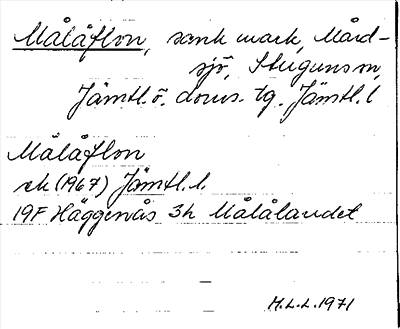 Målåflon, sank mark, Mård-
sjö, Stuguns sn,
Jämtl. ö. doms. tg. Jämtl. l
Målåflon
ek (1967) Jämtl. l.
19F Häggenås 3h Målålandet
M.L.L. 1971